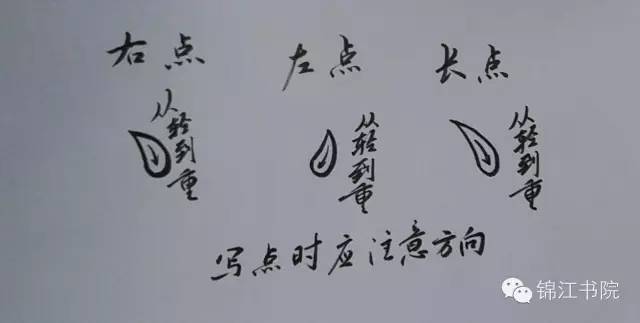 右点 左点 长点
从轻到重 从轻到重 从轻到重
写点时应注意方向
锦江书院